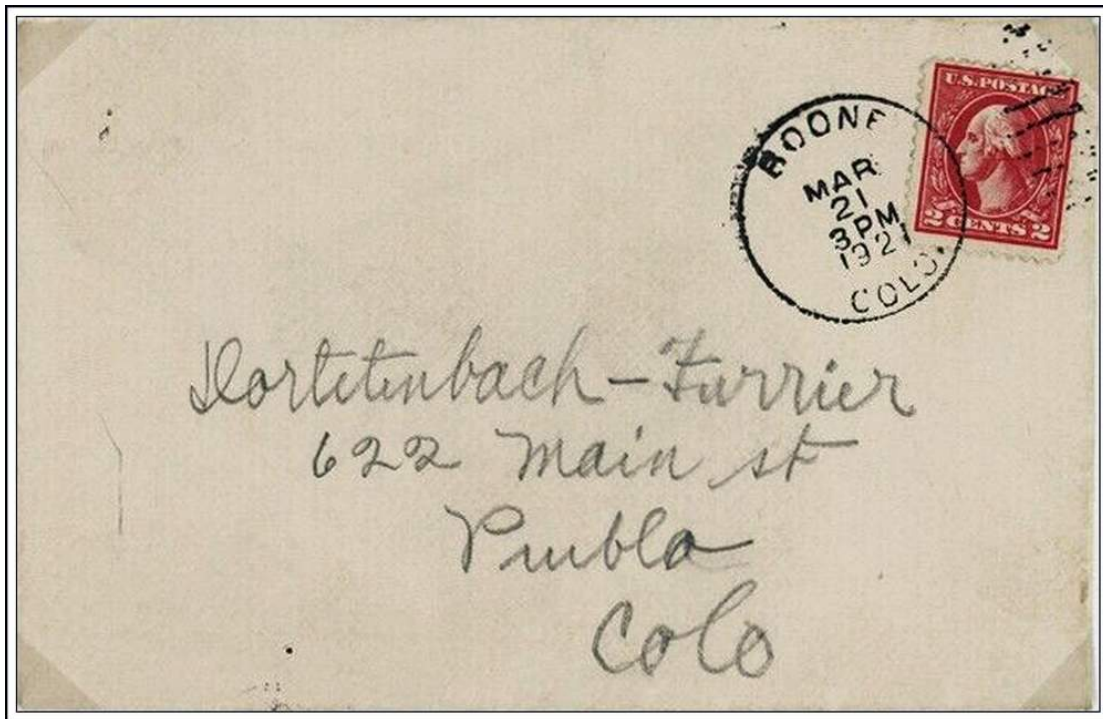 U.S. POSTAGE
2 CENTS 2
BOONE
MAR
21
3 PM
1921
COLO.
Dortetenbach - Furrier
622 Main st
Pueblo
Colo